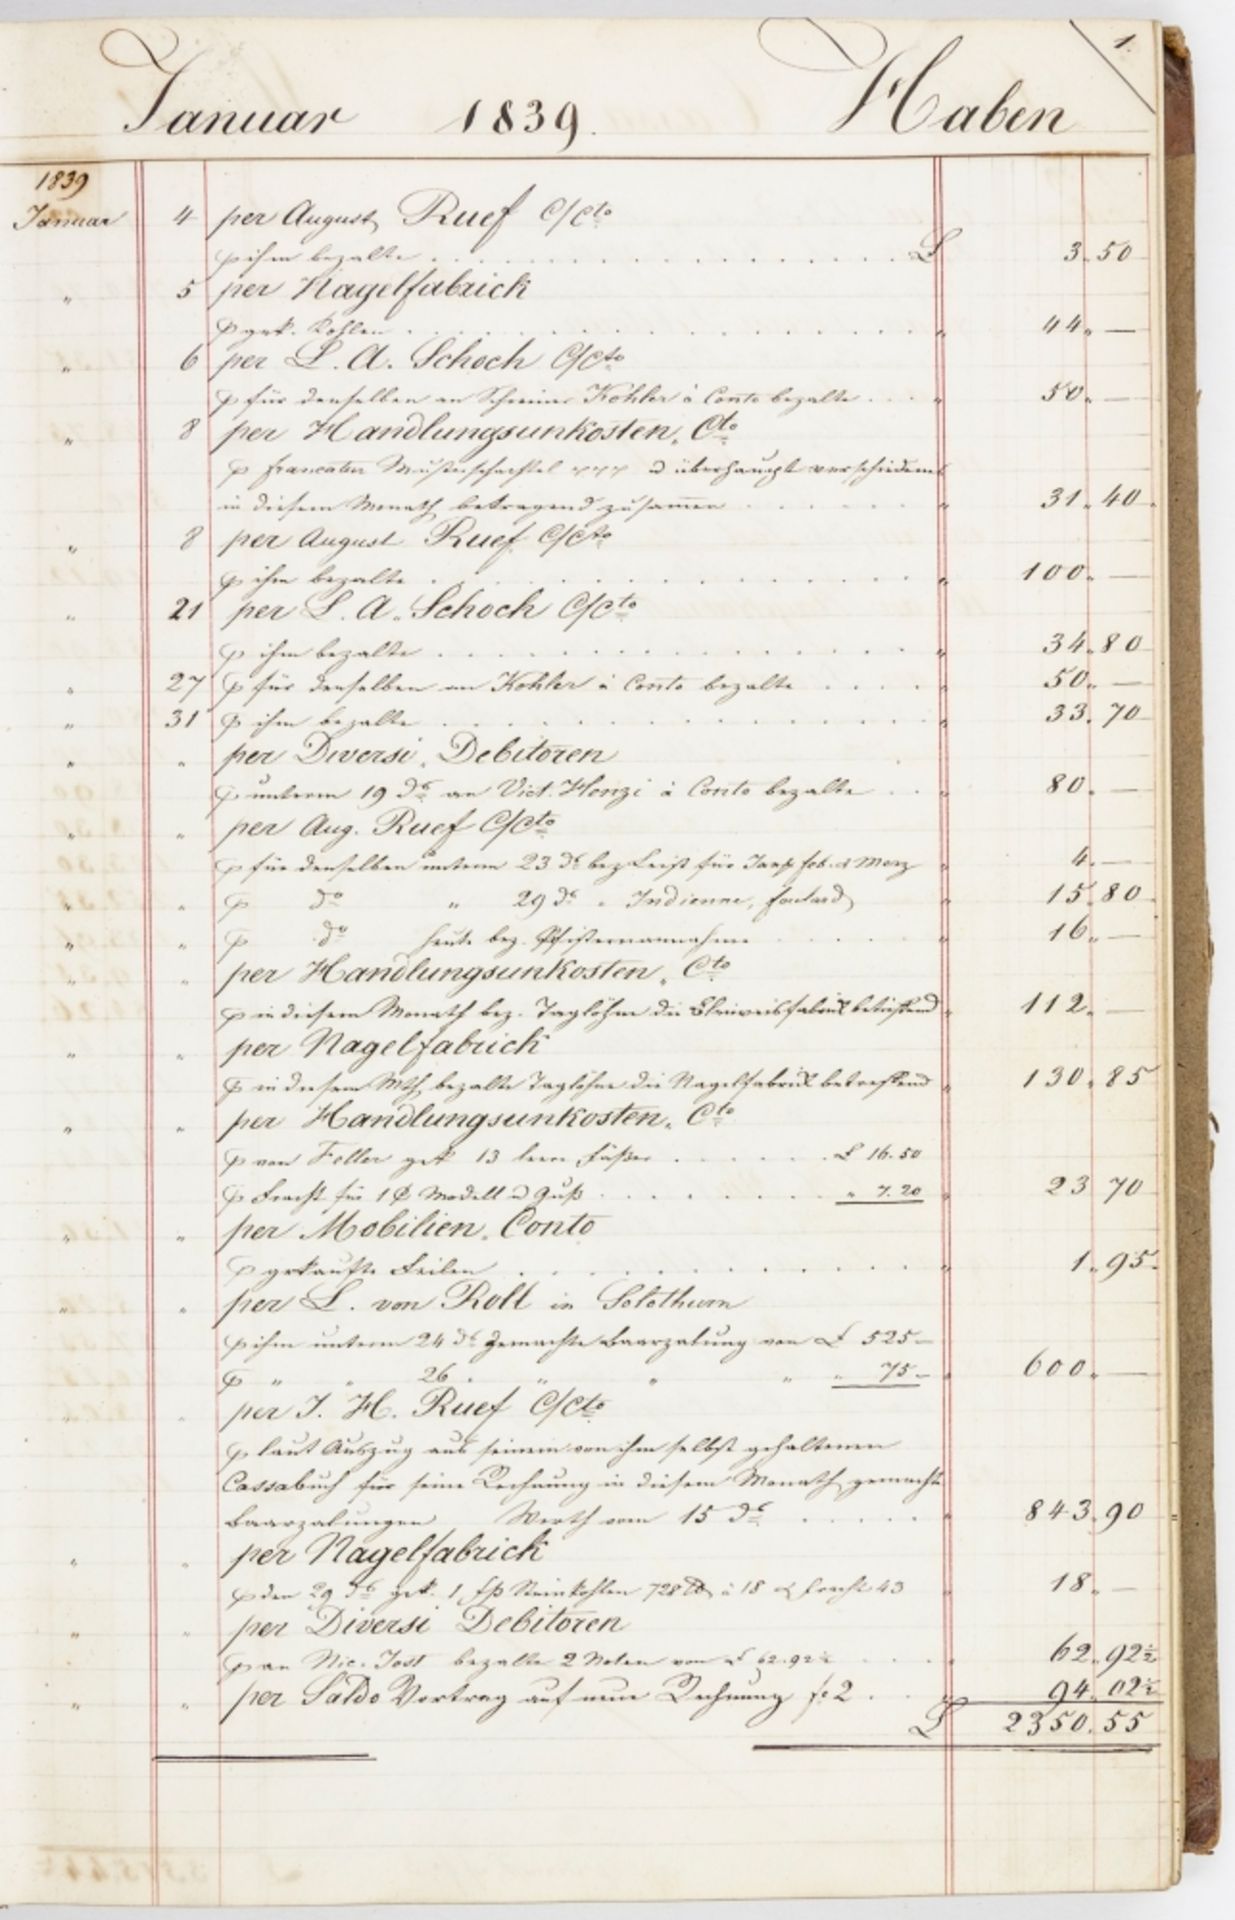 1.
Januar 1839. Haben
1839
Januar 4 per August Ruef C/Cto
p ihm bezalte L 3. 50
" 5 per Nagelfabrick
p gek. Kohlen " 44. —
" 6 per L. A. Schoch C/Cto
p für denselben an Schreiner Kohler à Conto bezalte " 50. —
" 8 per Handlungsunkosten, Cto
p francaten Musterschachtel überhaupt verschiedenes
in diesem Monath betragend zusam̅en " 31. 40.
" 8 per August Ruef C/Cto
p ihm bezalte " 100. —
" 21 per L. A. Schoch C/Cto
p ihm bezalte " 34. 80
" 27 p für denselben an Kohler à Conto bezalte " 50. —
" 31 p ihm bezalte " 33. 70
" " per Diversi Debitoren
p unterm 19 ds an Vict. Henzi à Conto bezalte " 80. —
" " per Aug. Ruef C/Cto
p für denselben unterm 23 ds bez. für & Merz " 4. —
" " p do " 29 ds " Indienne, foulard " 15. 80
" " p do heute bez. " 16. —
" " per Handlungsunkosten, Cto
p in diesem Monath bez. Taglöhne die Bleiweisfabrik betreffend " 112. —
" " per Nagelfabrick
p in diesem Mth bezalte Taglöhne die Nagelfabrik betreffend " 130. 85
" " per Handlungsunkosten, Cto
p von Feller gek 13 leere Fäßer L 16. 50
p Fracht für 1 Modell Guß " 7. 20 23 70
" " per Mobilien, Conto
p gekaufte Feilen " 1. 95.
" " per L. von Roll in Solothurn
p ihm unterm 24 ds gemachte Baarzalung von L 525 —
p " " 26 " " " " " 75 — " 600. —
" " per J. H. Ruef C/Cto
p laut Auszug aus seinem von ihm selbst gehaltenen
Cassabuch für seine Rechnung in diesem Monath gemachte
Baarzalungen Werth vom 15 ds " 843. 90
" " per Nagelfabrick
p den 29 ds gek. 1 Steinkohlen 728 à 18 & Fracht 43 18. —
" " per Diversi Debitoren
p an Nic. Jost bezalte 2 Noten von L 62. 92½ 62. 92½
" " per Saldo Vortrag auf neue Rechnung fo 2 " 94. 02½
L 2350. 55